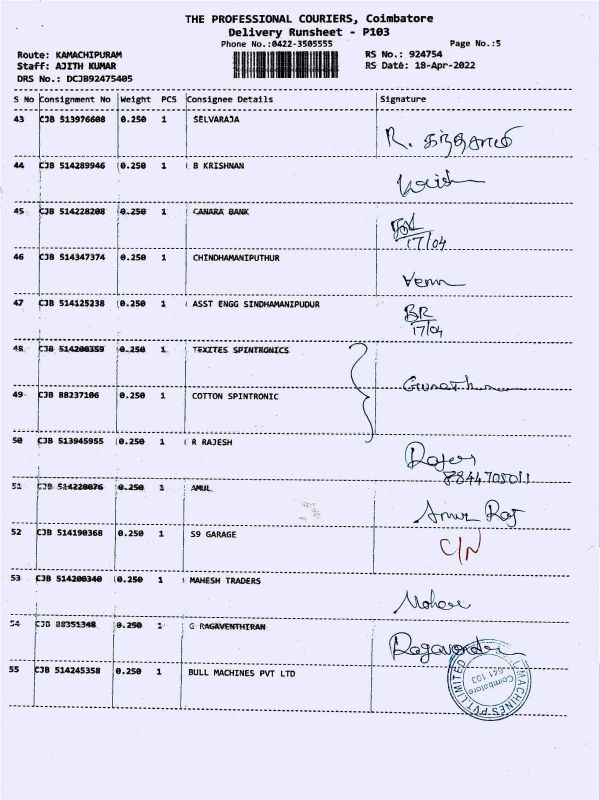 THE PROFESSIONAL COURIERS, Coimbatore
Delivery Runsheet - P103
Phone No.:0422-3505555 Page No.:5
Route: KAMACHIPURAM RS No.: 924754
Staff: AJITH KUMAR RS Date: 18-Apr-2022
DRS No.: DCJB92475405
S No Consignment No Weight PCS Consignee Details Signature
43 CJB 513976608 0.250 1 SELVARAJA
R. கந்தசாமி
44 CJB 514289946 0.250 1 B KRISHNAN
Krish
45 CJB 514228208 0.250 1 CANARA BANK
17/04
46 CJB 514347374 0.250 1 CHINDHAMANIPUTHUR
Venn
47 CJB 514125238 0.250 1 ASST ENGG SINDHAMANIPUDUR
BR
17/04
48 CJB 514208359 0.250 1 TEXITES SPINTRONICS
49 CJB 88237106 0.250 1 COTTON SPINTRONIC
50 CJB 513945955 0.250 1 R RAJESH
8844705011
51 CJB 514228076 0.250 1 AMUL
Raj
52 CJB 514190368 0.250 1 S9 GARAGE
C/N
53 CJB 514200340 0.250 1 MAHESH TRADERS
54 CJB 88351348 0.250 1 G RAGAVENTHIRAN
55 CJB 514245358 0.250 1 BULL MACHINES PVT LTD
MACHINES PVT. LIMITED
Coimbatore
641 103